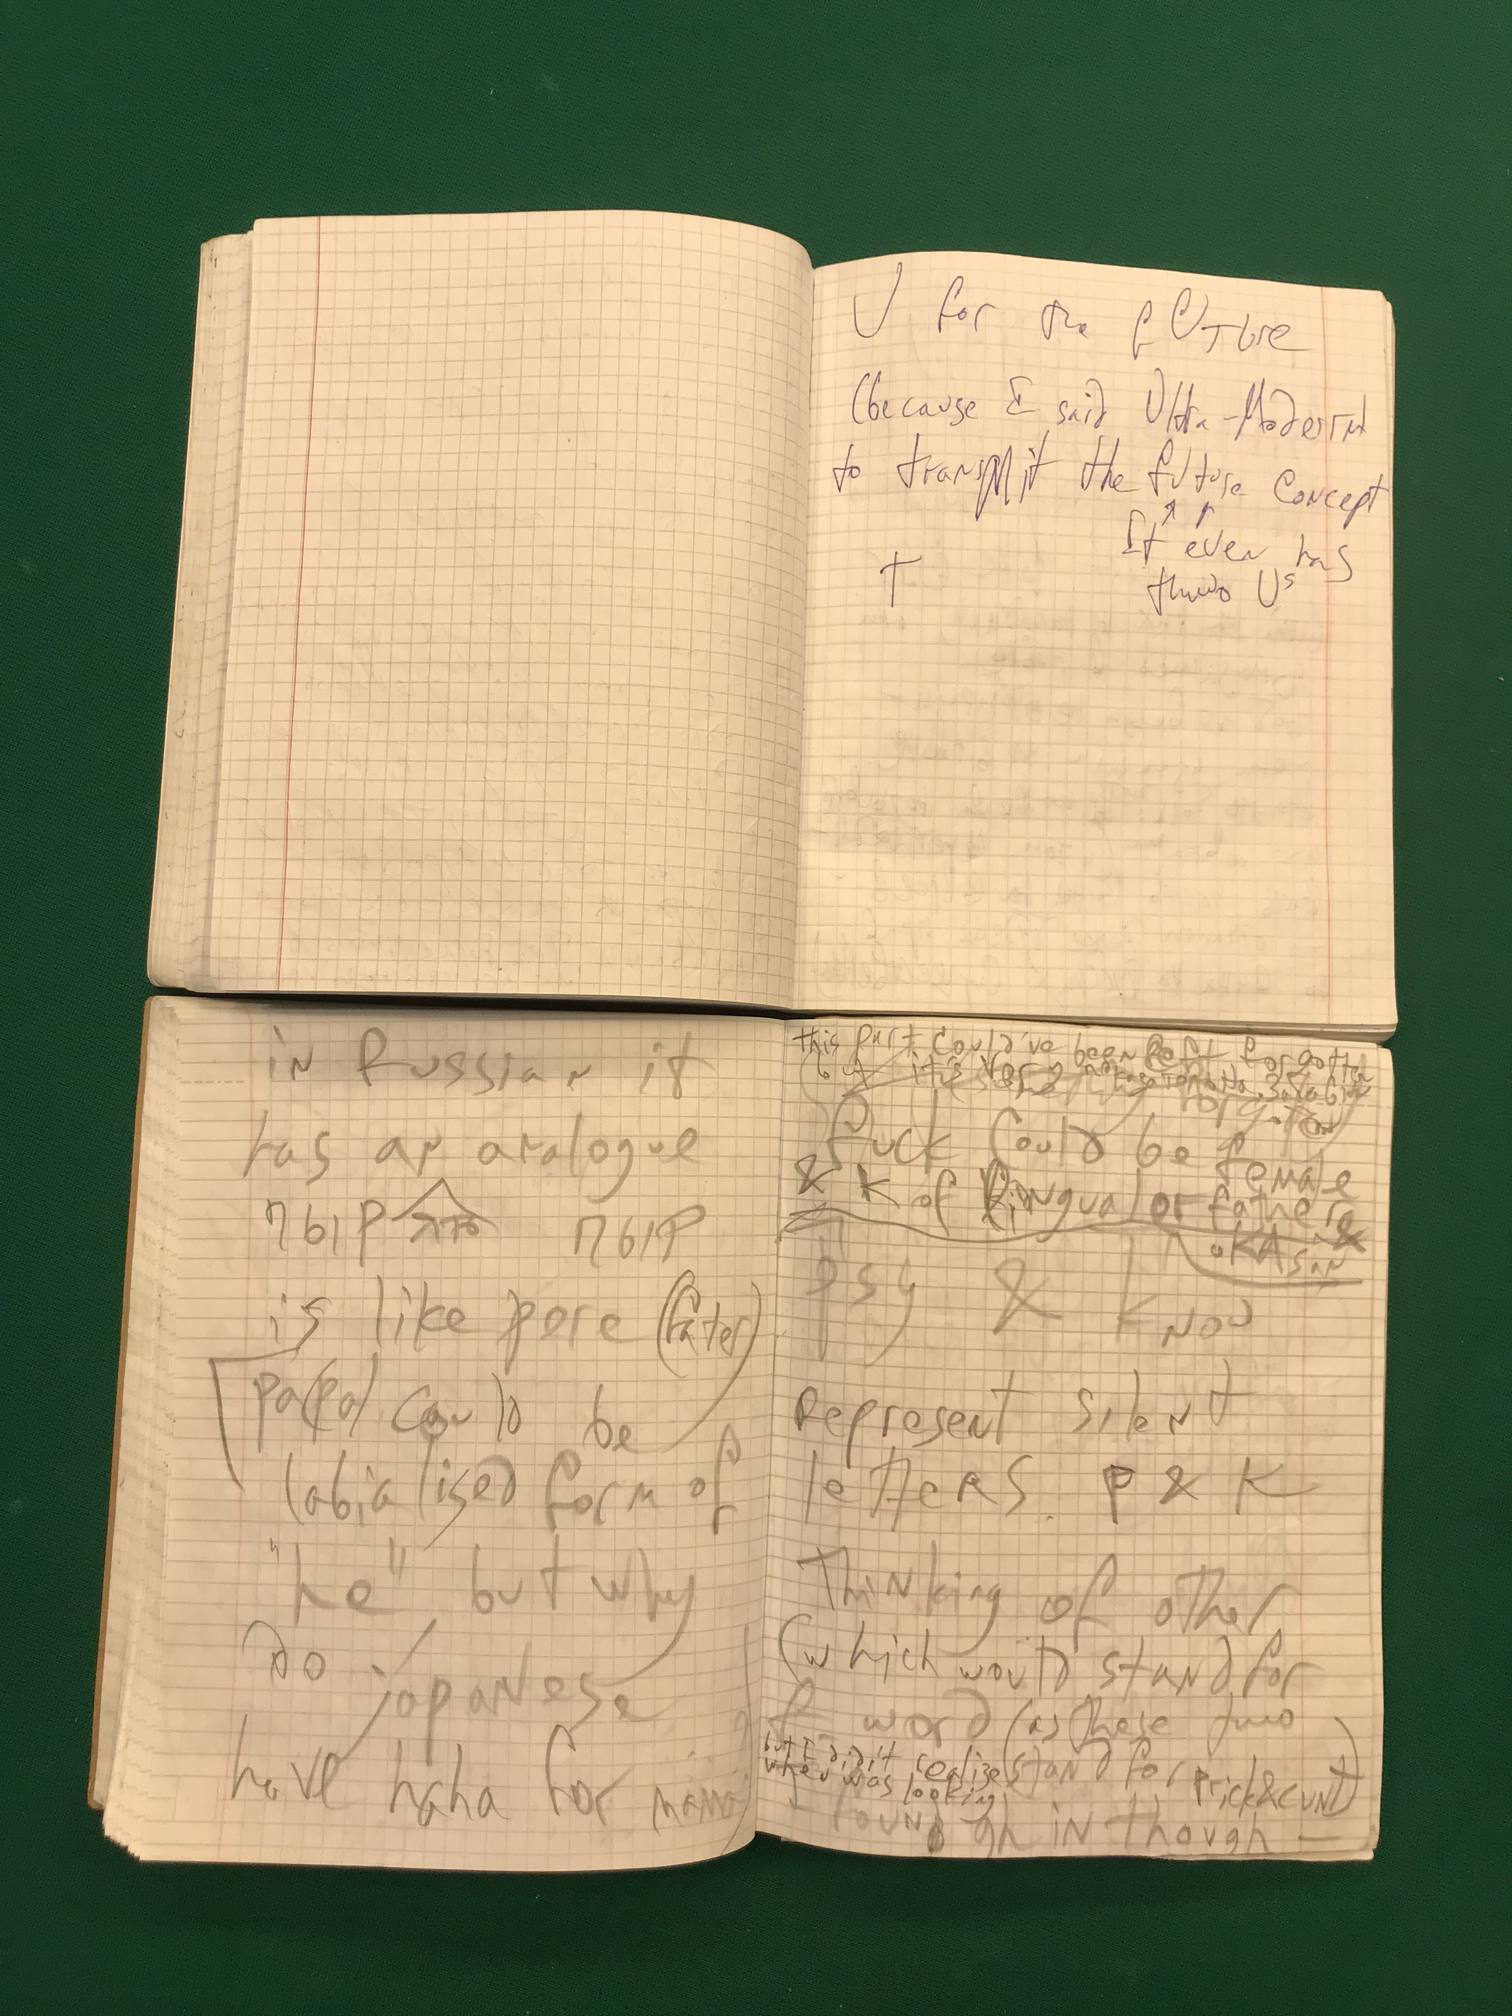 U for the fUTure
(because I said Ultra-Modern
to transmit the future concept
It even has
thwo Us
T
in Russian it
has an analogue
пыр пыр
is like pere (fater)
pa(pa) could be
labialised form of
"he" but why
do japanese
have haha for mama
this part could've been left forgotten
but it's very
fuck could be female
& K of lingual or father &
oKAsan
psy & know
represent silent
letters. P & K
Thinking of other
(which would stand for
f word (as these two
stand for prick&cunt)
but I didn't realize
when was looking
I found gh in though —